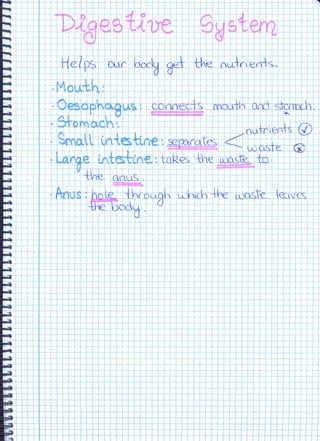 Digestive System
Helps our body get the nutrients.
· Mouth:
· Oesophagus: connects mouth and stomach.
· Stomach:
· Small intestine: separates < nutrients ✓
waste ✗
· Large intestine: takes the waste to
the anus
· Anus: hole through which the waste leaves
the body.